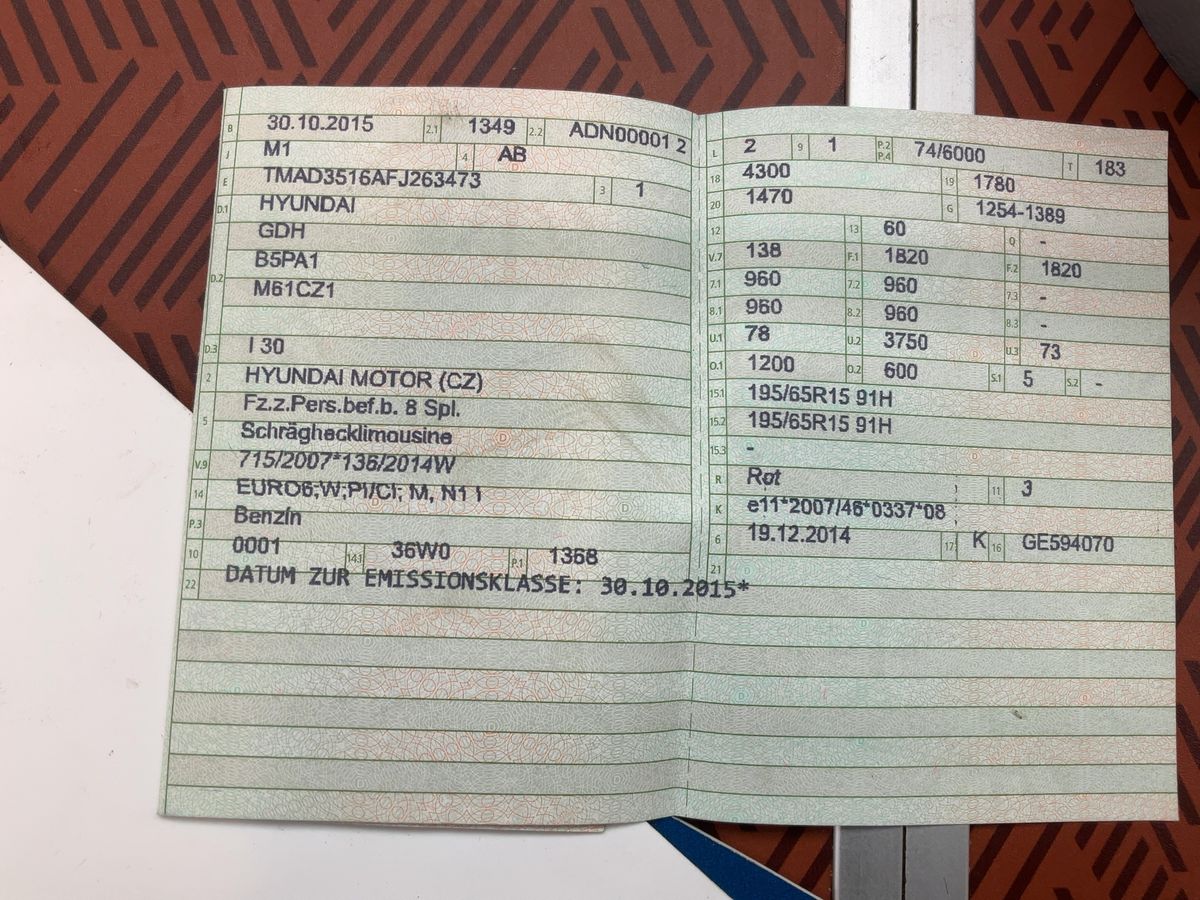 B 30.10.2015 2.1 1349 2.2 ADN00001 2
J M1 4 AB
E TMAD3516AFJ263473 3 1
D.1 HYUNDAI
GDH
D.2 B5PA1
M61CZ1
D.3 I 30
2 HYUNDAI MOTOR (CZ)
5 Fz.z.Pers.bef.b. 8 Spl.
Schräghecklimousine
V.9 715/2007*136/2014W
14 EURO6;W;PI/CI; M, N1 I
P.3 Benzin
10 0001 14.1 36W0 P.1 1368
22 DATUM ZUR EMISSIONSKLASSE: 30.10.2015*
L 2 9 1 P.2 P.4 74/6000 T 183
18 4300 19 1780
20 1470 G 1254-1389
12 13 60 Q -
V.7 138 F.1 1820 F.2 1820
7.1 960 7.2 960 7.3 -
8.1 960 8.2 960 8.3 -
U.1 78 U.2 3750 U.3 73
O.1 1200 O.2 600 S.1 5 S.2 -
15.1 195/65R15 91H
15.2 195/65R15 91H
15.3 -
R Rot 11 3
K e11*2007/46*0337*08
6 19.12.2014 17 K 16 GE594070
21